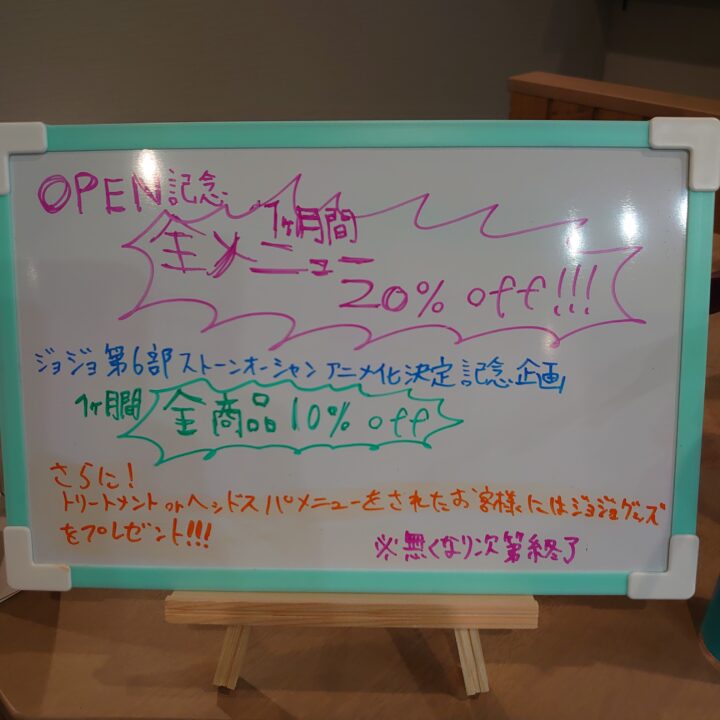 OPEN記念
1ヶ月間
全メニュー
20% off!!!
ジョジョ第6部ストーンオーシャンアニメ化決定記念企画
1ヶ月間 全商品10% off
さらに!
トリートメントorヘッドスパメニューをされたお客様にはジョジョグッズ
をプレゼント!!!
※無くなり次第終了